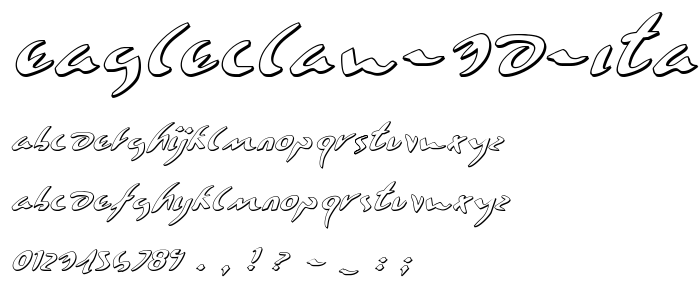 eagleclan-3D-ita
abcdefghijklmnopqrstuvwxyz
abcdefghijklmnopqrstuvwxyz
0123456789 . , ! ? - _ : ;